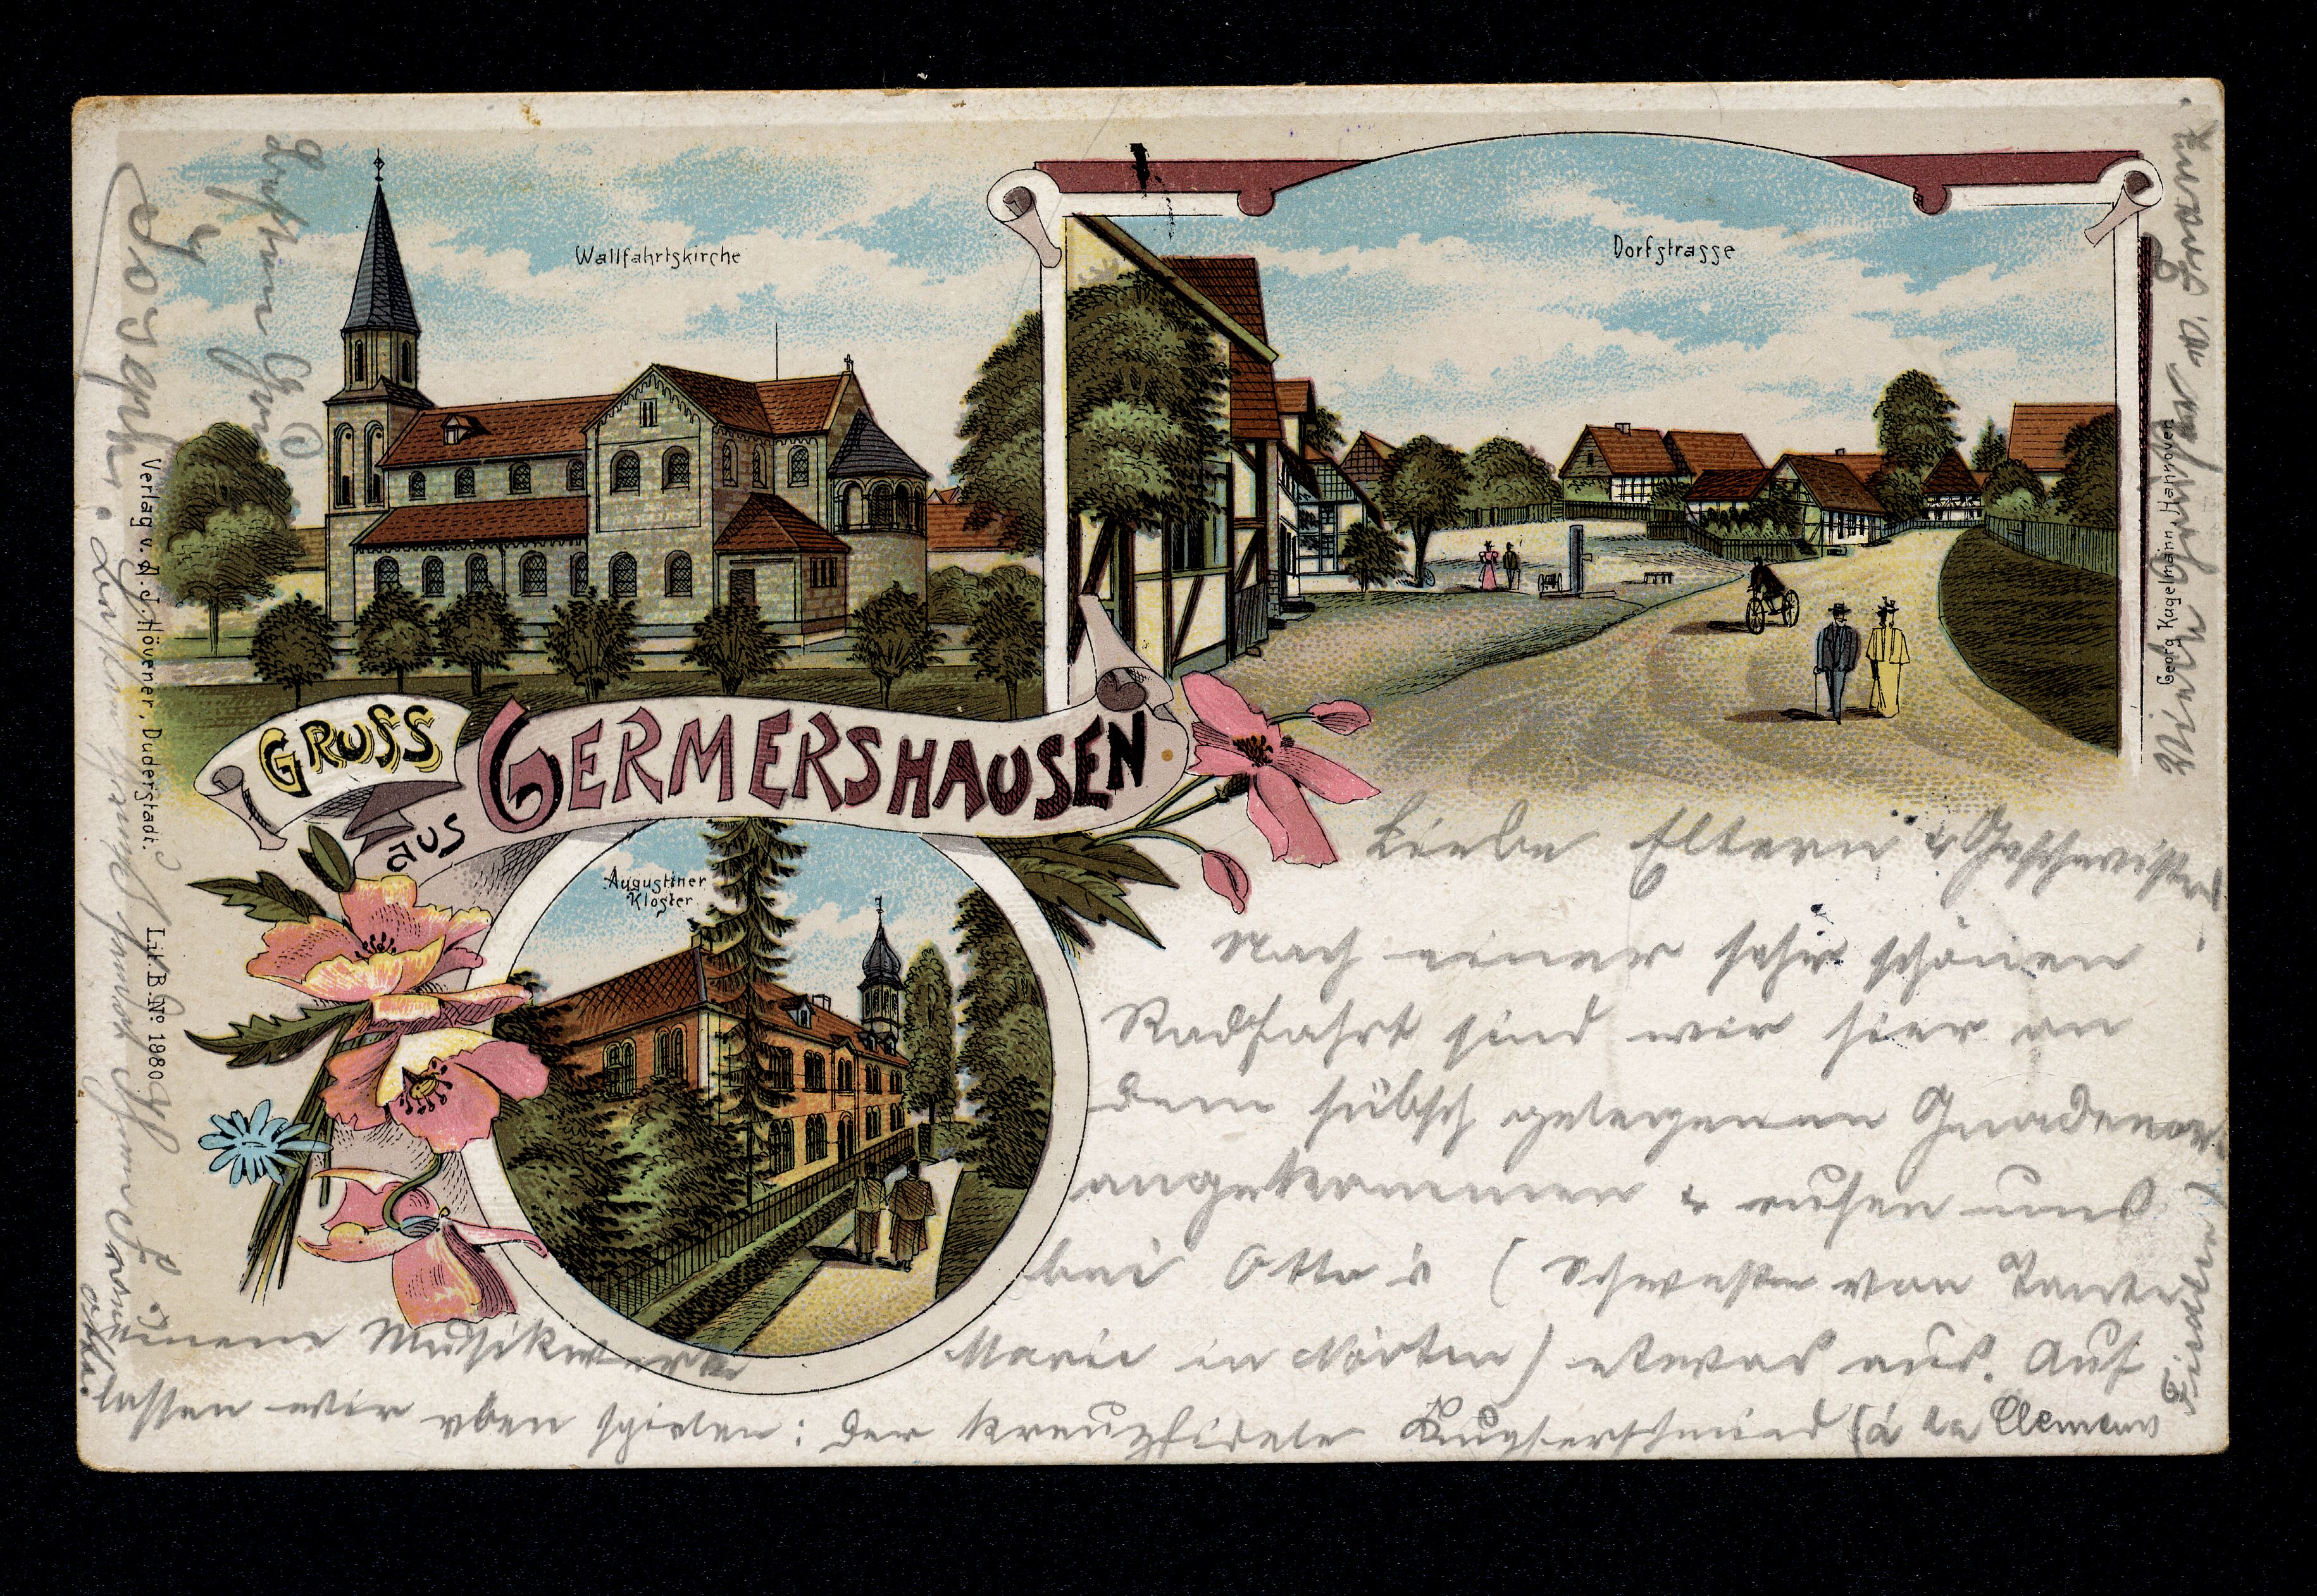 Wallfahrtskirche
Dorfstrasse
GRUSS
aus
GERMERSHAUSEN
Augustiner
Kloster
Verlag v. A. J. Hövener, Duderstadt.
Lit. B. No. 1980
Georg Kugelmann, Hannover
Liebe Eltern & Geschwister
Nach einer sehr schönen
Radfahrt sind wir hier an
dem hübsch gelegenen Gnadenort
angekommen & ruhen uns
bei Otto's (Schwester von Tante
Marie in Nörten) etwas aus. Auf
einem Musikwerk
lassen wir eben spielen: Der kreuzfidele Kupferschmied (á la Clemens
Fiedler)
Joseph.
Besten Gruß